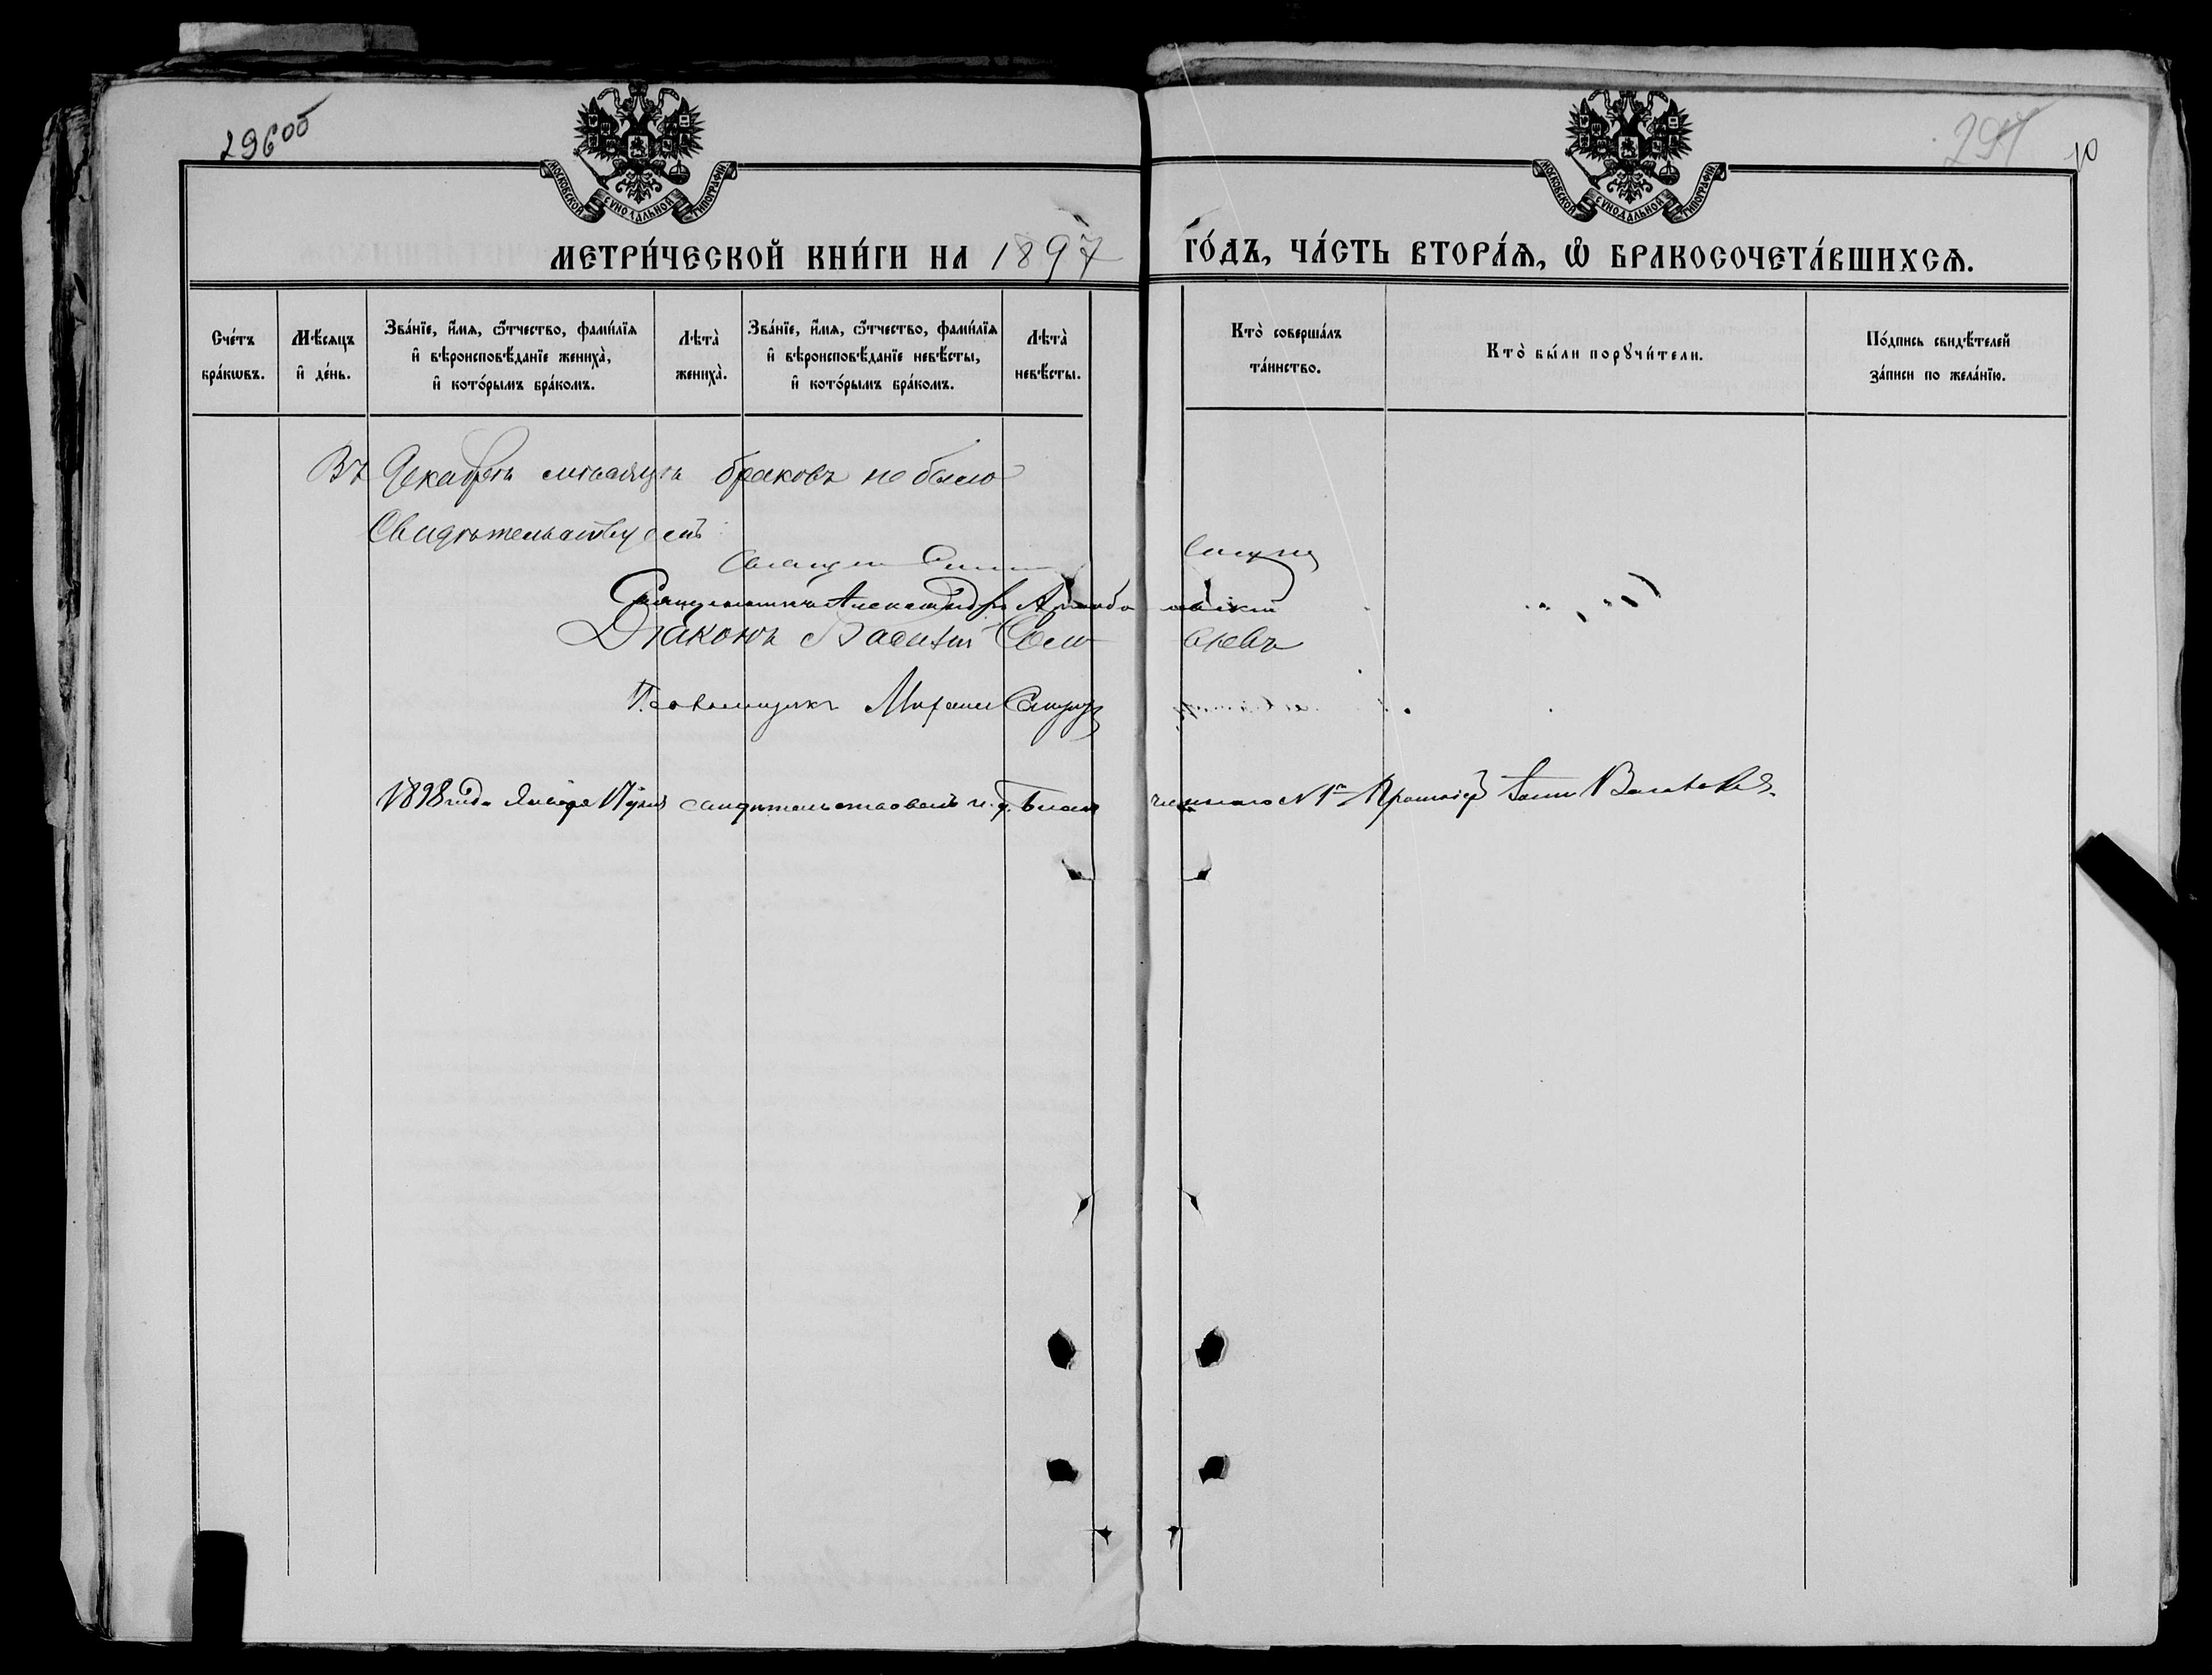 296об
297
10
МОСКОВСКОЙ СѴНОДАЛЬНОЙ ТИПОГРАФІИ
МОСКОВСКОЙ СѴНОДАЛЬНОЙ ТИПОГРАФІИ
МЕТРИ́ЧЕСКОЙ КНИ́ГИ НА 1897 ГО́ДЪ, ЧА́СТЬ ВТОРА́Я, Ѡ БРАКОСОЧЕТА́ВШИХСЯ.
Сче́тъ бра́кѡвъ.
Мѣ́сяцъ и҆ де́нь.
Зва́нїе, и҆́мя, ѻ҆́тчество, фами́лїя и҆ вѣроисповѣ́данїе жениха̀, и҆ кото́рымъ бра́комъ.
Лѣта̀ жениха̀.
Зва́нїе, и҆́мя, ѻ҆́тчество, фами́лїя и҆ вѣроисповѣ́данїе невѣ́сты, и҆ кото́рымъ бра́комъ.
Лѣта̀ невѣ́сты.
Кто̀ соверша́лъ та́инство.
Кто̀ бы́ли порꙋчи́тели.
По́дпись свидѣ́телей за́писи по жела́нїю.
Въ Декабрѣ мѣсяцѣ браковъ не было
Свидѣтельствуемъ:
Священникъ Александръ
Діаконъ Василій
Псаломщикъ Михаилъ
1898 года Января 17 дня свидѣтельствовалъ и. д. Благочиннаго № 1го Протоіерей